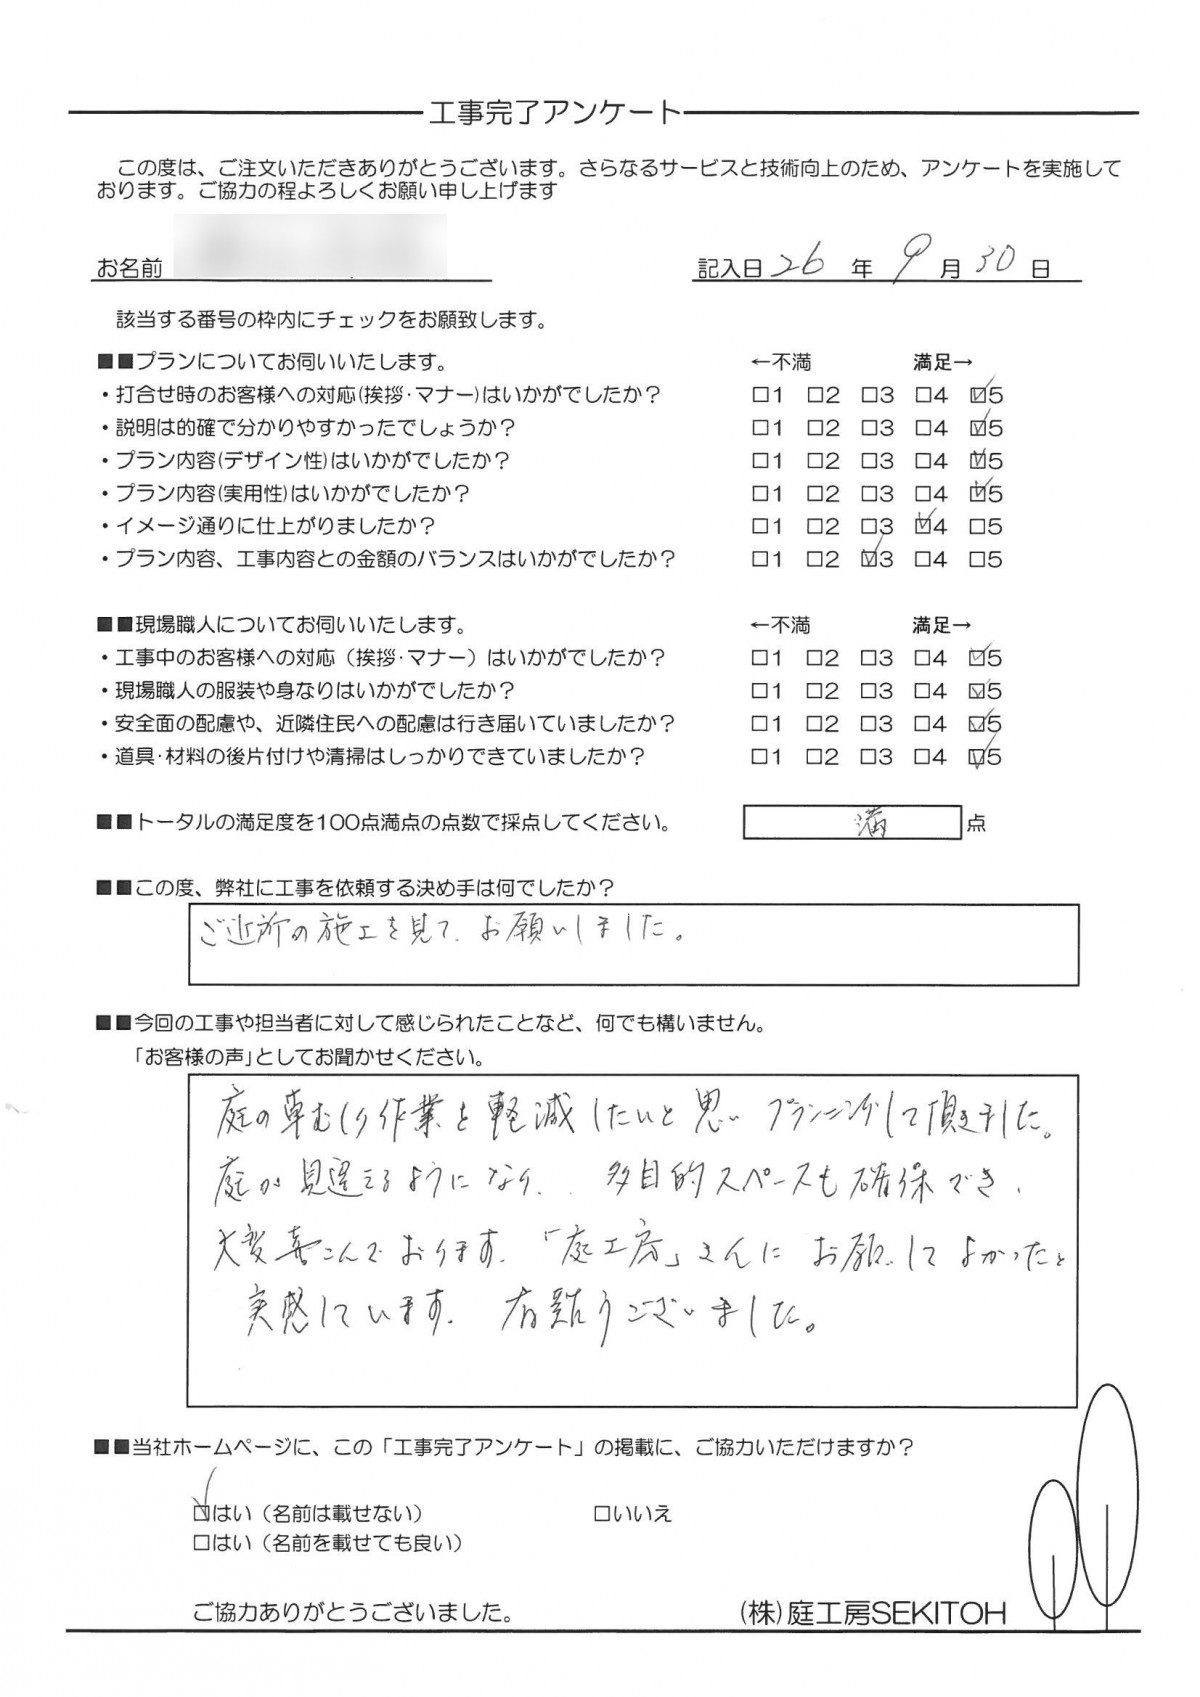 工事完了アンケート
この度は、ご注文いただきありがとうございます。さらなるサービスと技術向上のため、アンケートを実施して
おります。ご協力の程よろしくお願い申し上げます
お名前 記入日 26 年 9 月 30 日
該当する番号の枠内にチェックをお願致します。
■■プランについてお伺いいたします。 ←不満 満足→
・打合せ時のお客様への対応(挨拶・マナー)はいかがでしたか？ □1 □2 □3 □4 ☑5
・説明は的確で分かりやすかったでしょうか？ □1 □2 □3 □4 ☑5
・プラン内容(デザイン性)はいかがでしたか？ □1 □2 □3 □4 ☑5
・プラン内容(実用性)はいかがでしたか？ □1 □2 □3 □4 ☑5
・イメージ通りに仕上がりましたか？ □1 □2 □3 ☑4 □5
・プラン内容、工事内容との金額のバランスはいかがでしたか？ □1 □2 ☑3 □4 □5
■■現場職人についてお伺いいたします。 ←不満 満足→
・工事中のお客様への対応（挨拶・マナー）はいかがでしたか？ □1 □2 □3 □4 ☑5
・現場職人の服装や身なりはいかがでしたか？ □1 □2 □3 □4 ☑5
・安全面の配慮や、近隣住民への配慮は行き届いていましたか？ □1 □2 □3 □4 ☑5
・道具・材料の後片付けや清掃はしっかりできていましたか？ □1 □2 □3 □4 ☑5
■■トータルの満足度を100点満点の点数で採点してください。 満 点
■■この度、弊社に工事を依頼する決め手は何でしたか？
ご近所の施工を見て、お願いしました。
■■今回の工事や担当者に対して感じられたことなど、何でも構いません。
「お客様の声」としてお聞かせください。
庭の草むしり作業を軽減したいと思い プランニングして頂きました。
庭が見違えるようになり、多目的スペースも確保でき、
大変喜こんでおります。「庭工房」さんにお願いしてよかったと
実感しています。有難うございました。
■■当社ホームページに、この「工事完了アンケート」の掲載に、ご協力いただけますか？
☑はい（名前は載せない） □いいえ
□はい（名前を載せても良い）
ご協力ありがとうございました。 (株)庭工房SEKITOH